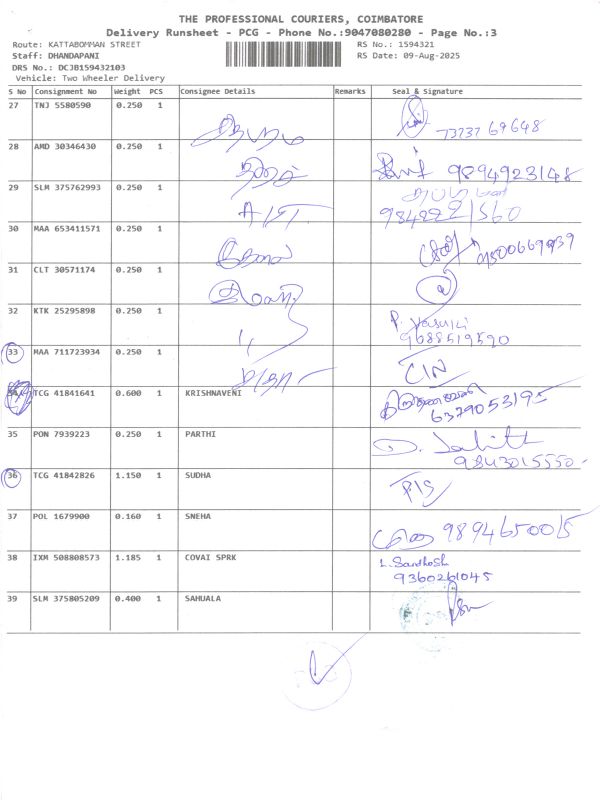 THE PROFESSIONAL COURIERS, COIMBATORE
Delivery Runsheet - PCG - Phone No.:9047080280 - Page No.:3
Route: KATTABOMMAN STREET RS No.: 1594321
Staff: DHANDAPANI RS Date: 09-Aug-2025
DRS No.: DCJB159432103
Vehicle: Two Wheeler Delivery
S No Consignment No Weight PCS Consignee Details Remarks Seal & Signature
27 TNJ 5580590 0.250 1
73737 69648
28 AMD 30346430 0.250 1
9894923148
29 SLM 375762993 0.250 1
30 MAA 653411571 0.250 1
9500669939
31 CLT 30571174 0.250 1
32 KTK 25295898 0.250 1 P. Vasuki
9688519590
33 MAA 711723934 0.250 1 CIN
34 TCG 41841641 0.600 1 KRISHNAVENI
6379053195
35 PON 7939223 0.250 1 PARTHI
9843015550
36 TCG 41842826 1.150 1 SUDHA
37 POL 1679900 0.160 1 SNEHA 9894650015
38 IXM 508808573 1.185 1 COVAI SPRK 1. Santhosh
9360261045
39 SLM 375805209 0.400 1 SAHUALA